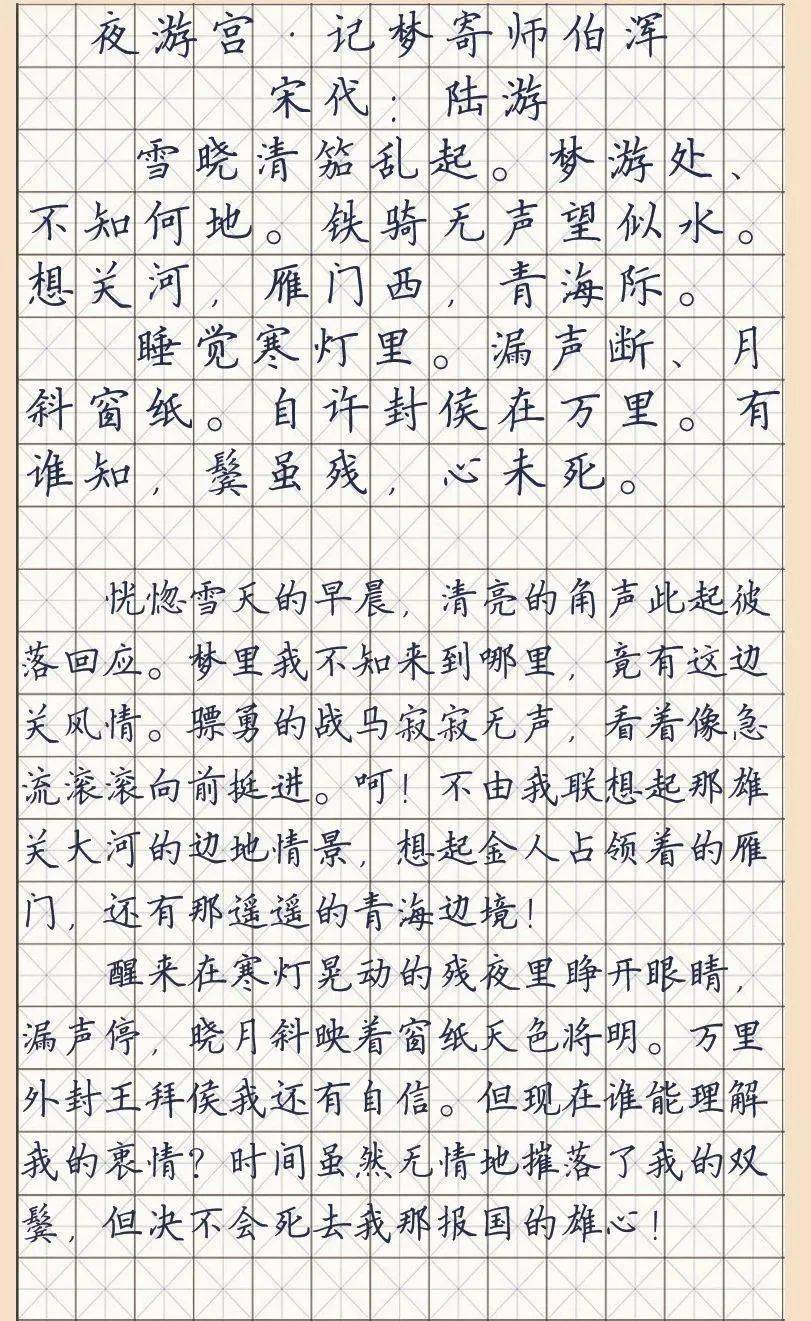 夜游宫·记梦寄师伯浑
宋代：陆游
雪晓清笳乱起。梦游处、
不知何地。铁骑无声望似水。
想关河，雁门西，青海际。
睡觉寒灯里。漏声断、月
斜窗纸。自许封侯在万里。有
谁知，鬓虽残，心未死。
恍惚雪天的早晨，清亮的角声此起彼
落回应。梦里我不知来到哪里，竟有这边
关风情。骠勇的战马寂寂无声，看着像急
流滚滚向前挺进。呵！不由我联想起那雄
关大河的边地情景，想起金人占领着的雁
门，还有那遥遥的青海边境！
醒来在寒灯晃动的残夜里睁开眼睛，
漏声停，晓月斜映着窗纸天色将明。万里
外封王拜侯我还有自信。但现在谁能理解
我的衷情？时间虽然无情地摧落了我的双
鬓，但决不会死去我那报国的雄心！